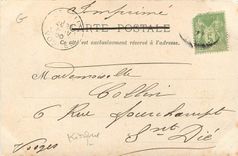 G
Imprimé
CARTE POSTALE
Ce côté est exclusivement réservé à l'adresse.
Mademoiselle
Collin
6 Rue Fourchampt
St Dié
Vosges